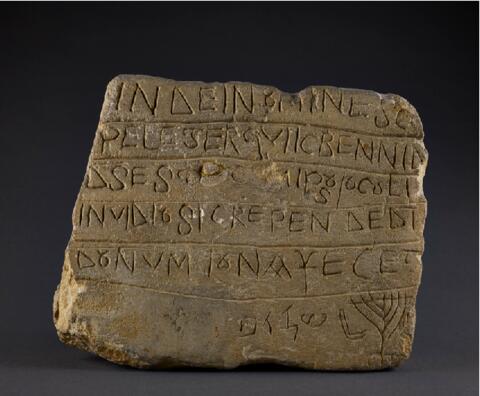 IN DEI NOMINE SC
PELEGER QVI IC BENNID
DS ESTO CVM IPSO OCOLI
INVIDIOSI CREPEN DE DI
DONVM IONA FECET
שלום